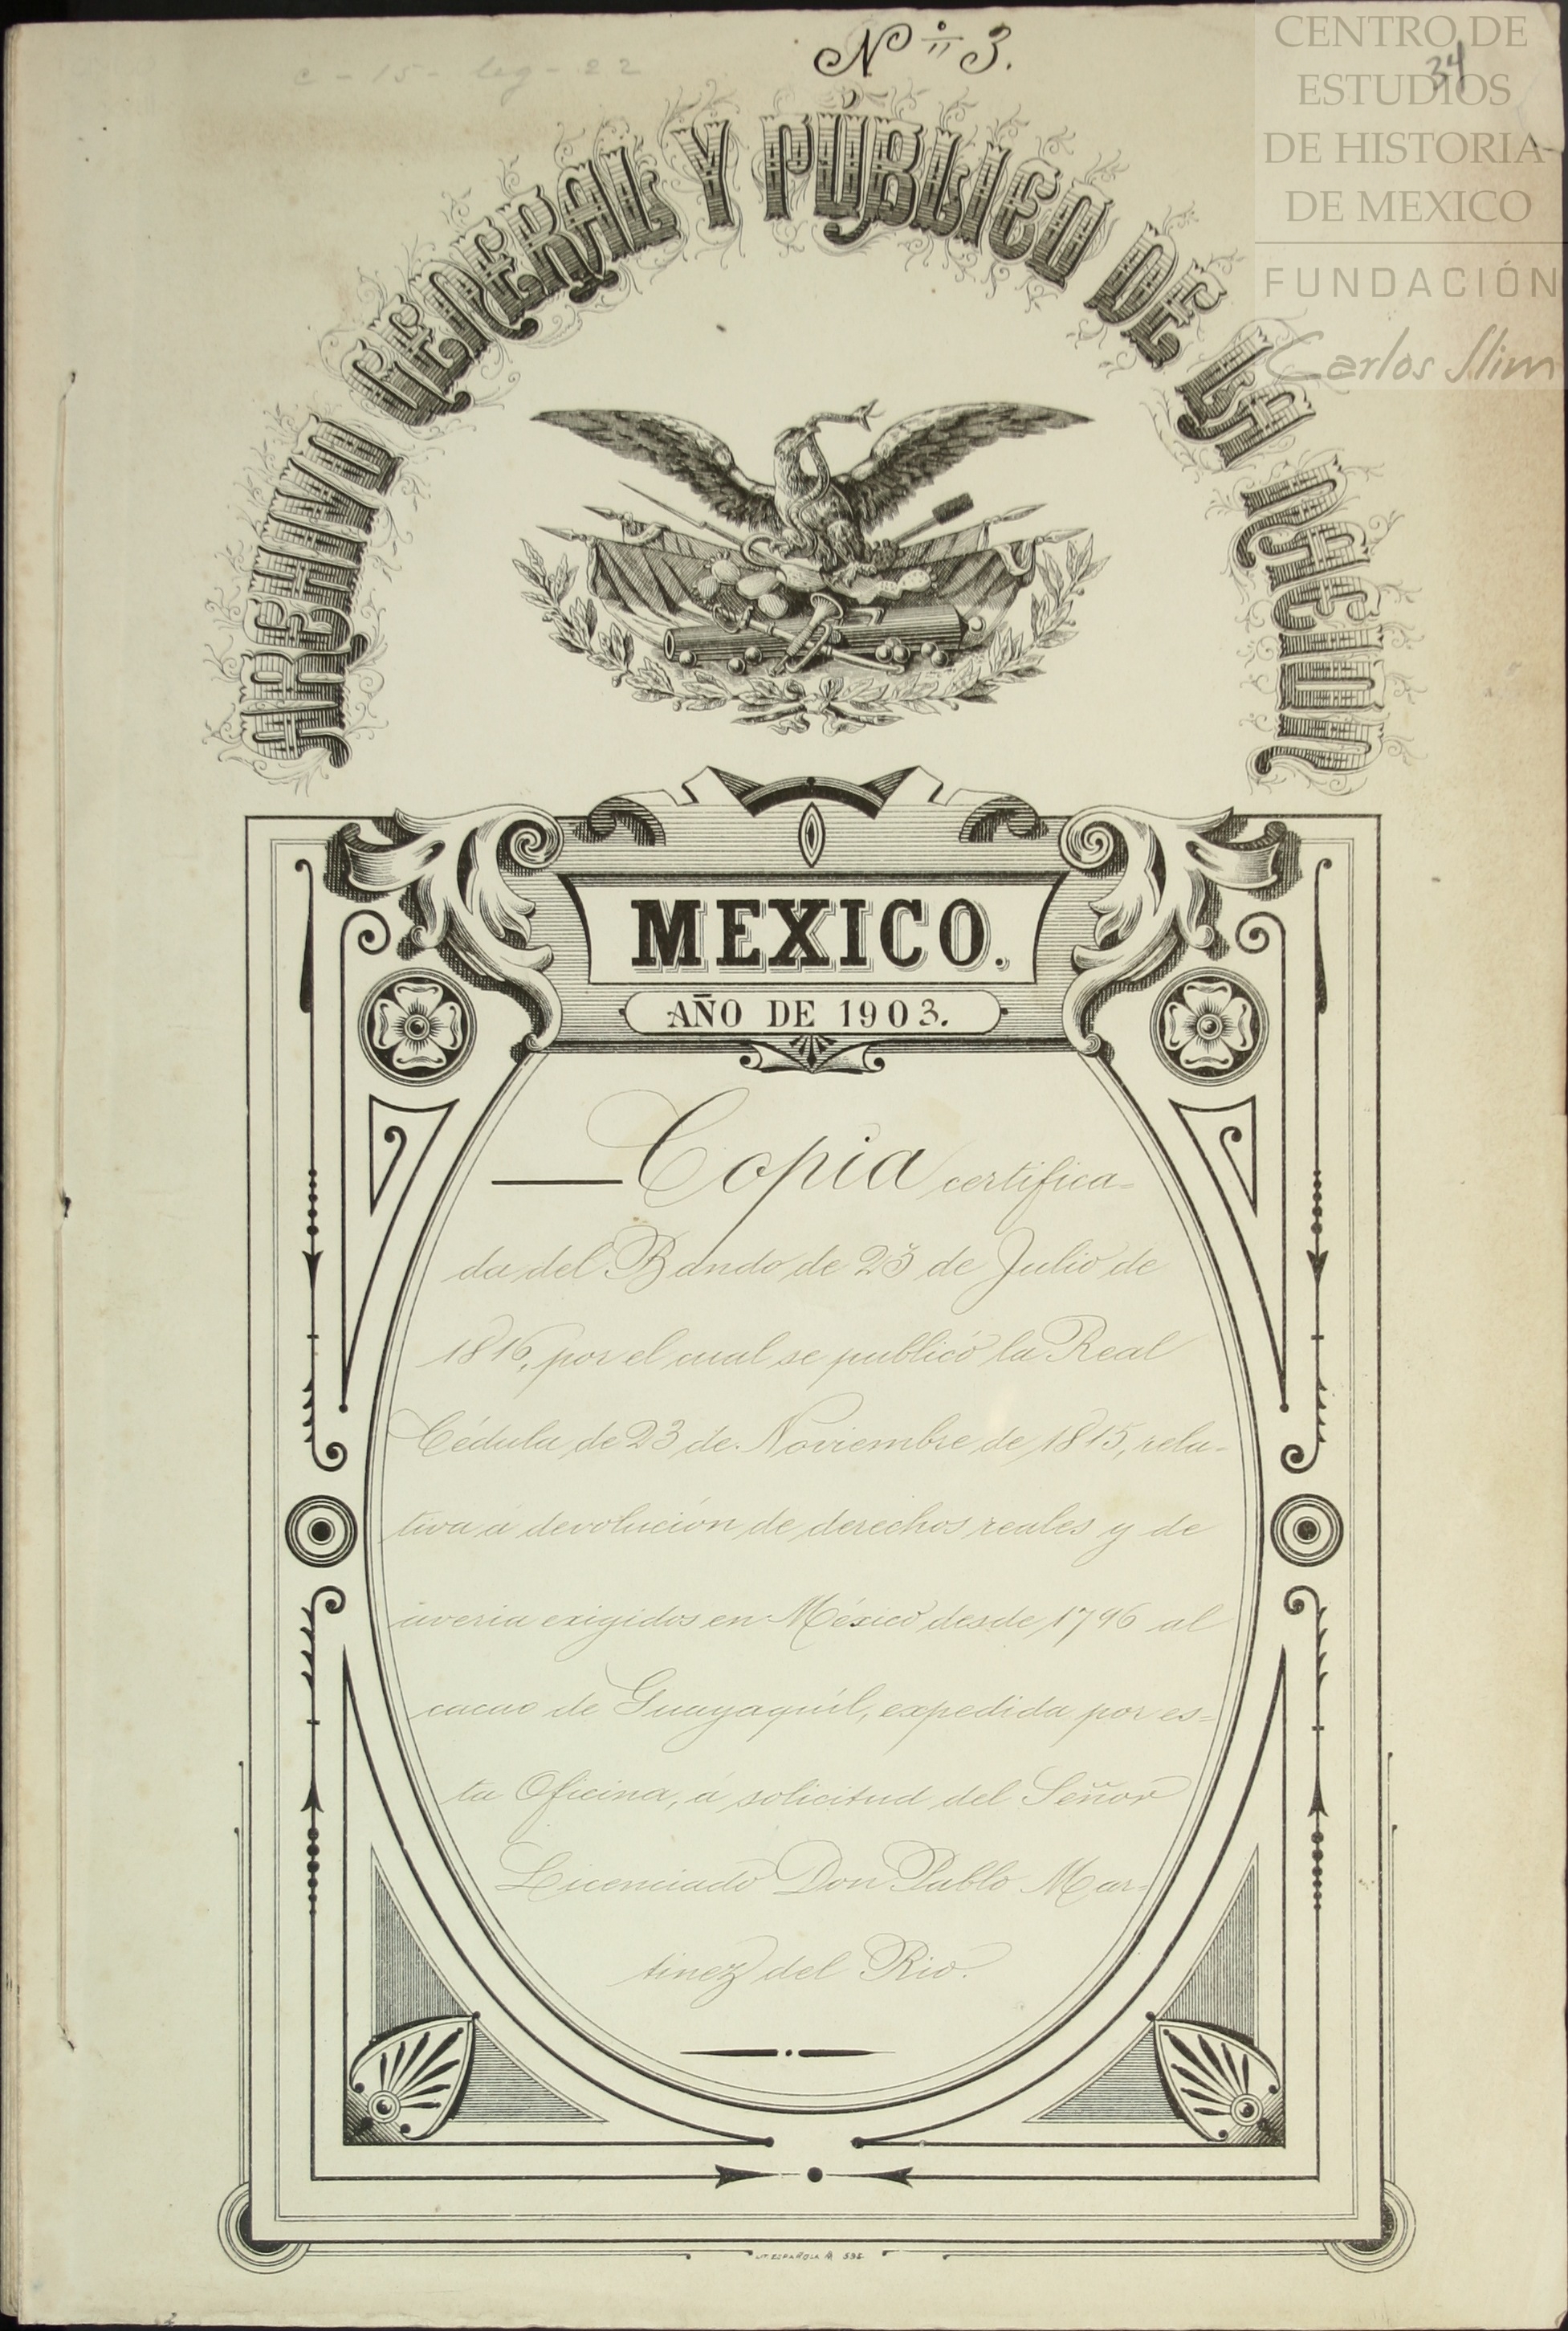 Nº 3.
c - 15 - leg - 22
34
CENTRO DE
ESTUDIOS
DE HISTORIA
DE MEXICO
FUNDACIÓN
Carlos Slim
ARCHIVO GENERAL Y PÚBLICO DE LA NACION
MEXICO.
AÑO DE 1903.
Copia certifica=
da del Bando de 23 de Julio de
1816, por el cual se publicó la Real
Cédula de 23 de Noviembre de 1815, rela-
tiva á devolución de derechos reales y de
averia exigidos en México desde 1796 al
cacao de Guayaquil, expedida por es=
ta Oficina, á solicitud del Señor
Licenciado Don Pablo Mar-
tinez del Rio.
LIT. ESPAÑOLA